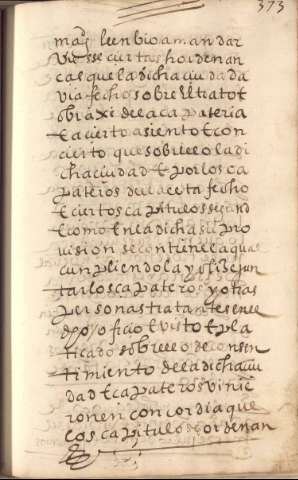 373
mag[d] le enbio a mandar
viesse ciertas hordenan
ças que la dicha ciudad a
via fecho sobre el trato e
obraxe de la çapateria
e a cierto asiento e con
cierto que sobre ello la di
cha ciudad e por los ça
pateros della esta fecho
e ciertos capitulos segund
e como en la dicha su pro
vision se contiene la qual
cunpliendola yofizejun
tar los çapateros y otras
personas tratantes en el
dho oficio e visto e pla
ticado sobre ello de consen
timiento de la dicha ciu
dad e çapateros vinie
ron en concordia que
los capitulos e ordenan